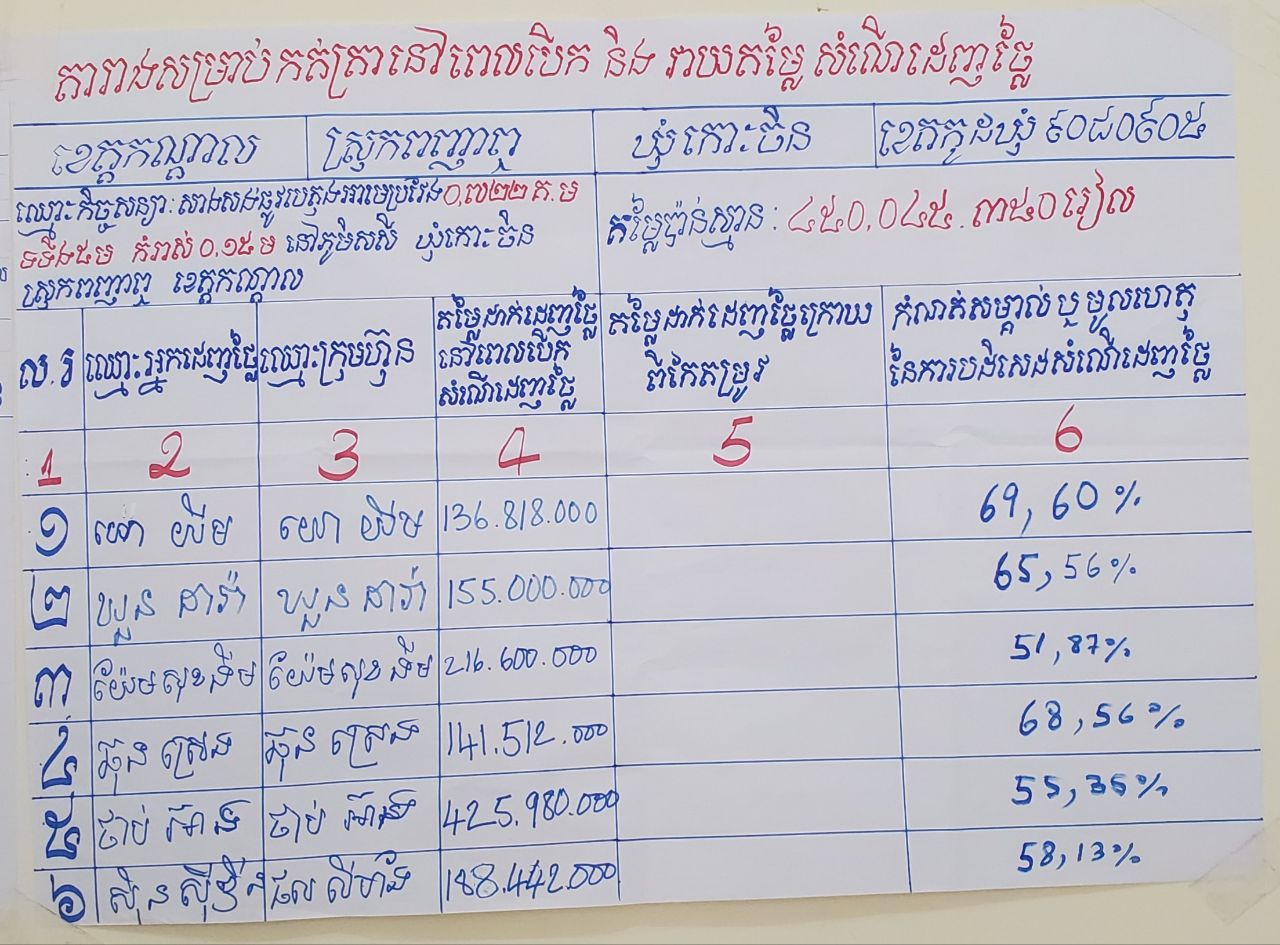 តារាងសម្រាប់កត់ត្រានៅពេលបើក និង វាយតម្លៃ សំណើដេញថ្លៃ
ខេត្តកណ្ដាល ស្រុកពញាឮ ឃុំកោះចិន ខេតកូដឃុំ ៩០៨០៩០៥
ឈ្មោះកិច្ចសន្យា: សាងសង់ផ្លូវបេតុងអាមេប្រវែង០,៧២២ គ.ម
ទទឹង៥ម កំរាស់ ០,១៥ ម នៅភូមិសសី ឃុំកោះចិន
ស្រុកពញាឮ ខេត្តកណ្ដាល
តម្លៃប៉ាន់ស្មាន : ៤៥០,០៤៥.៣៥០រៀល
ល.រ
ឈ្មោះអ្នកដេញថ្លៃ
ឈ្មោះក្រុមហ៊ុន
តម្លៃដាក់ដេញថ្លៃ
នៅពេលបើក
សំណើដេញថ្លៃ
តម្លៃដាក់ដេញថ្លៃក្រោយ
ពីកែតម្រូវ
កំណត់សម្គាល់ ឬ មូលហេតុ
នៃការបដិសេដសំណើដេញថ្លៃ
1 2 3 4 5 6
១ យោ យឹម យោ យឹម 136.818.000 69,60%
២ ឃួន ដារ៉ា ឃួន ដារ៉ា 155.000.000 65,56%
៣ យ៉ែមសុខទឹម យ៉ែមសុខទឹម 216.600.000 51,87%
៤ ឆុន ស្រេង ឆុន ស្រេង 141.512.000 68,56%
៥ ចាប់ អ៊ាង ចាប់ អ៊ាង 425.980.000 55,35%
៦ ស៊ិន 188.442.000 58,13%